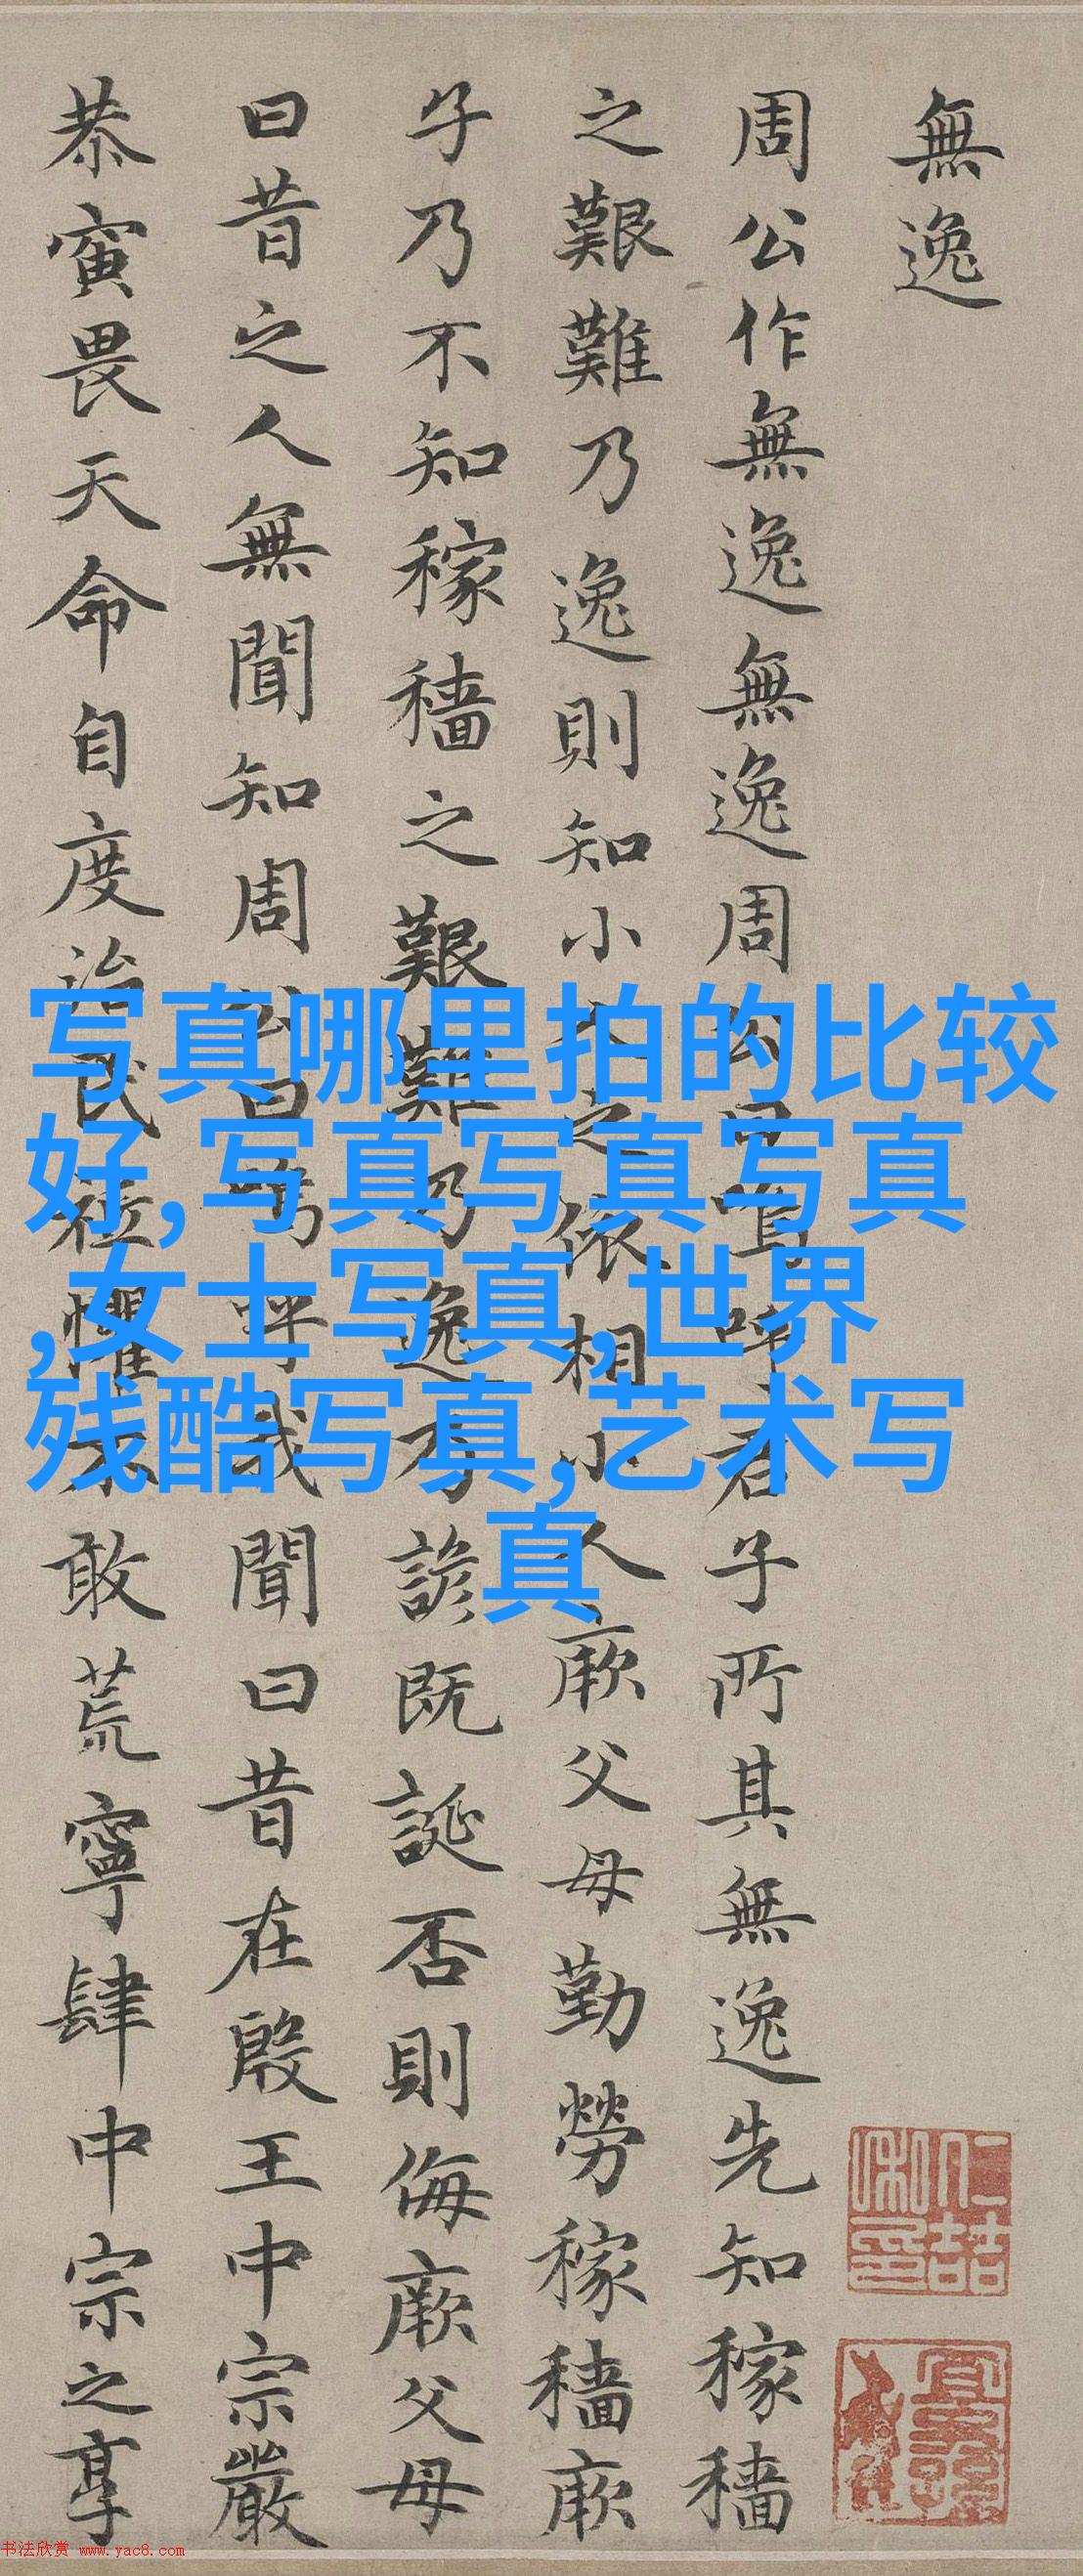 無逸
周公作無逸無逸周公曰嗚呼君子所其無逸先知稼穡
之艱難乃逸則知小人之依相小人厥父母勤勞稼穡厥
子乃不知稼穡之艱難乃逸乃諺既誕否則侮厥父母
曰昔之人無聞知周公曰嗚呼我聞曰昔在殷王中宗嚴
恭寅畏天命自度治民祗懼不敢荒寧肆中宗之享
写真哪里拍的比较
好,写真写真写真
,女士写真,世界
残酷写真,艺术写
真
书法欣赏 www.yac8.com